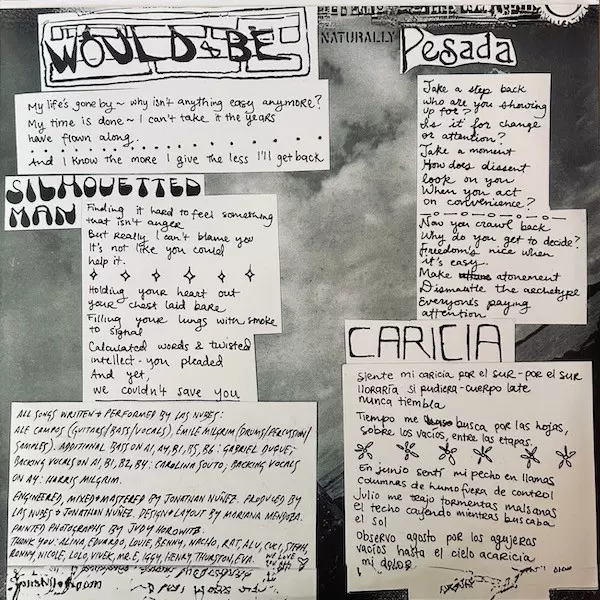 WOULD BE
My life's gone by ~ why isn't anything easy anymore?
My time is done ~ I can't take it the years
have flown along
And I know the more I give the less I'll get back
SILHOUETTED
MAN
Finding it hard to feel something
that isn't anger
But really I can't blame you
It's not like you could
help it.
Holding your heart out
your chest laid bare
Filling your lungs with smoke
to signal
Calculated words & twisted
intellect - you pleaded
And yet,
we couldn't save you
ALL SONGS WRITTEN + PERFORMED BY LAS NUBES:
ALE CAMPOS (GUITARS/BASS/VOCALS), EMILE MILGRIM (DRUMS/PERCUSSION/
SAMPLES). ADDITIONAL BASS ON A1, A4, B1, B5, B6: GABRIEL DUQUE;
BACKING VOCALS ON A1, B1, B2, B4: CAROLINA SOUTO, BACKING VOCALS
ON A4: HARRIS MILGRIM.
ENGINEERED, MIXED + MASTERED BY JONATHAN NUÑEZ. PRODUCED BY
LAS NUBES & JONATHAN NUÑEZ. DESIGN + LAYOUT BY MARIANA MENDOZA.
PAINTED PHOTOGRAPHS BY JUDY HOROWITZ.
THANK YOU: ALINA, EDUARDO, LOUIE, BENNY, NACHO, RAT, ALU, CUCI, STEPH,
RONNY, NICOLE, LOLO, VIVER, MR. E, IGGY, HENRY, THURSTON, EVA.
WE LOVE
YOU
NATURALLY
Pesada
Take a step back
who are you showing
up for?
Is it for change
or attention?
Take a moment
How does dissent
look on you
When you act
on convenience?
Now you crawl back
Why do you get to decide?
Freedom's nice when
it's easy..
Make atonement
Dismantle the archetype
Everyone's paying
attention
CARICIA
Siente mi caricia por el sur - por el sur
lloraría si pudiera - cuerpo late
nunca tiembla
Tiempo me busca por las hojas,
sobre los vacíos, entre las etapas.
En junio sentí mi pecho en llamas
columnas de humo fuera de control
Julio me trajo tormentas malsanas
el techo cayendo mientras buscaba
el sol
Observo agosto por los agujeros
vacíos hasta el cielo acaricia
mi dolor